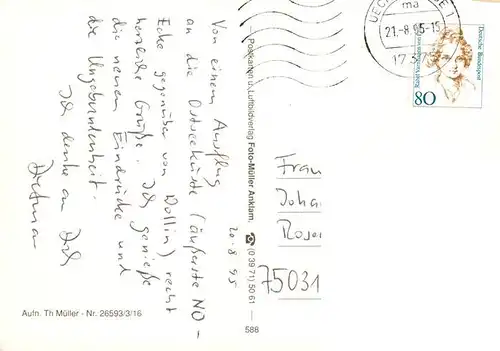 Von einem Ausflug
an die Ostseeküste (äußerste NO-
Ecke gegenüber von Wollin) recht
herzliche Grüße. Ich genieße
die neuen Eindrücke und
die Ungebundenheit.
Ich denke an Dich
Dietmar
20.8.95
Postkarten u. Luftbildverlag Foto-Müller Anklam, ☎ (0 39 71) 50 61
588
Aufn. Th Müller - Nr. 26593/3/16
ma
21.-8.95-15
Deutsche Bundespost
80
Frau
Joha
Rose
75031